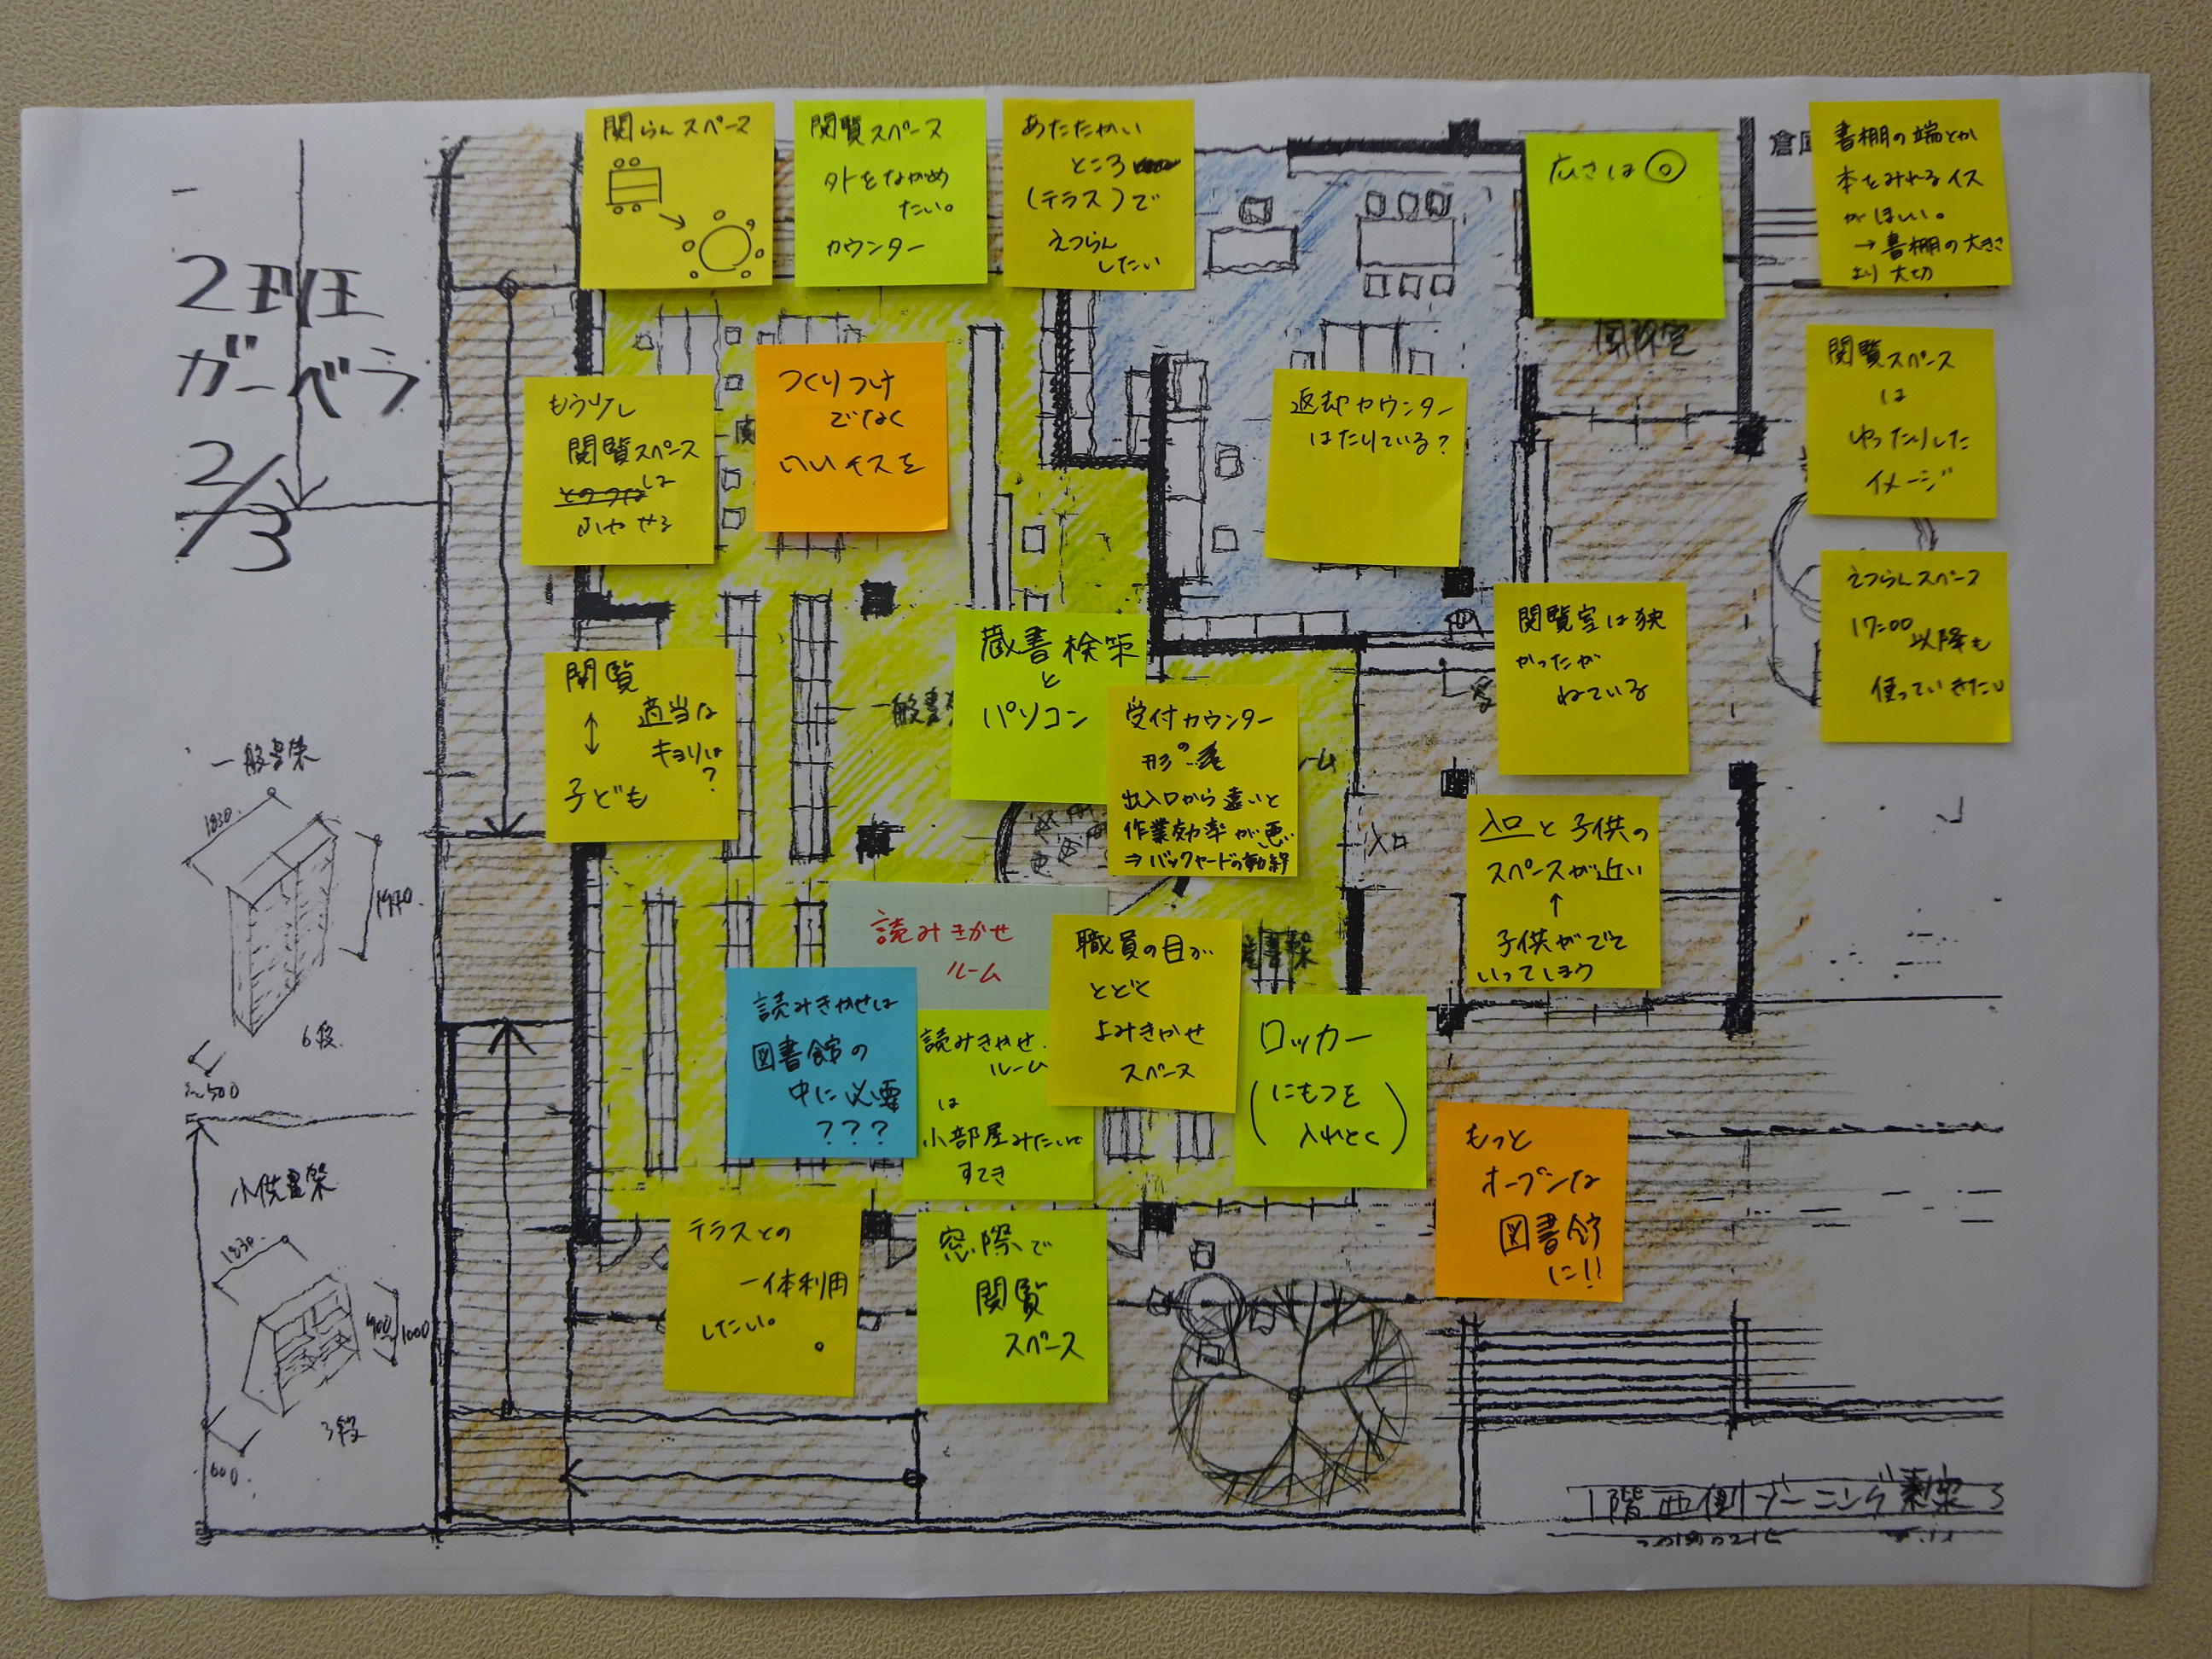 2班
ガーベラ
2/3
関らんスペース
閲覧スペース
外をながめ
たい。
カウンター
あたたかい
ところ
(テラス)で
えつらん
したい
広さは◎
書棚の端とか
本をみれるイス
がほしい。
→書棚の大きさ
より大切
もう少し
閲覧スペース
は
ふやせる
つくりつけ
でなく
いいイスを
返却カウンター
はたりている?
閲覧スペース
は
ゆったりした
イメージ
えつらんスペース
17:00
以降も
使っていきたい
閲覧室は狭
かったが
ねている
閲覧
↕
適当な
キョリは
?
子ども
蔵書検策
と
パソコン
受付カウンター
の
形
出入口から遠いと
作業効率が悪い
⇒バックヤードの動線
入口
入口と子供の
スペースが近い
↑
子供がでて
いってしまう
読みきかせ
ルーム
職員の目が
とどく
よみきかせ
スペース
読みきかせは
図書館の
中に必要
???
読みきかせ
ルーム
は
小部屋みたいで
すてき
ロッカー
(にもつを
入れとく)
もっと
オープンな
図書館
に!!
テラスとの
一体利用
したい。
窓際で
閲覧
スペース
一般書架
1830
1970
6段
小供書架
1830
900
1000
600
3段
1階西側ゾーニング素案3